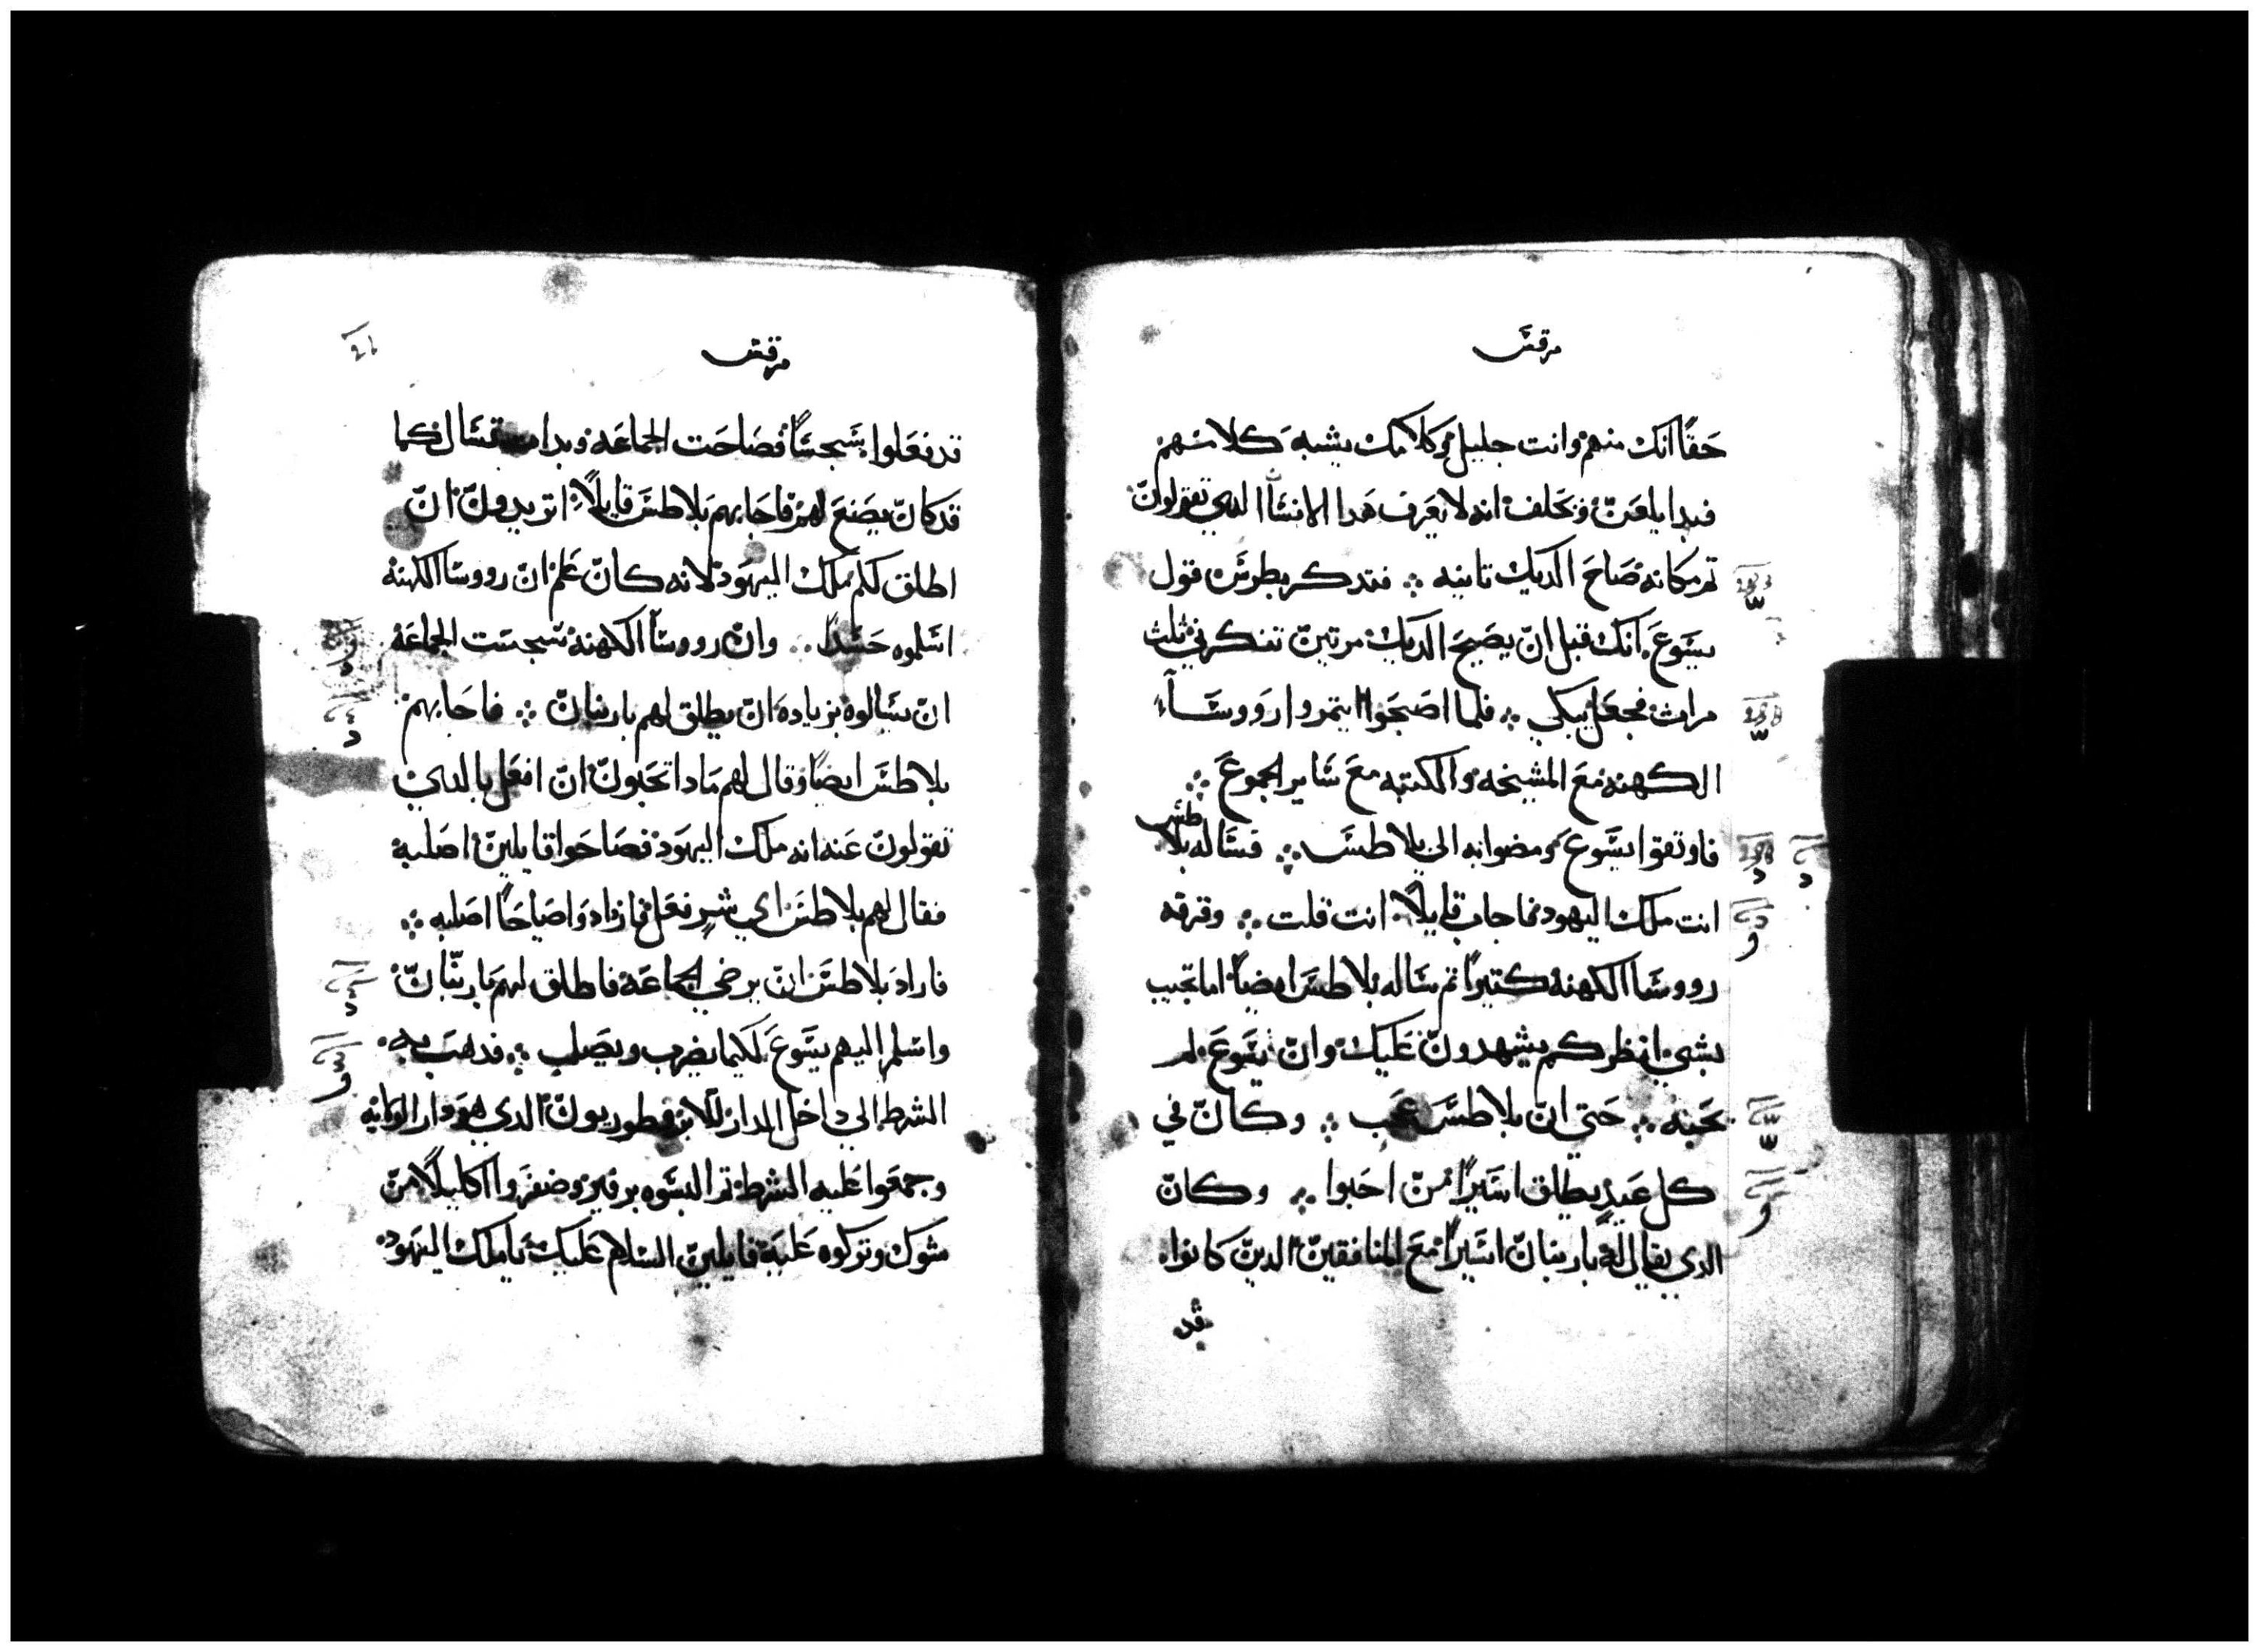 مرقس
حقاً انك منهم وانت جليلي وكلامك يشبه كلامهم
فبدا يلعن ويحلف انه لا يعرف هدا الانسان الدي تقولون
تم مكانه صاح الديك تانيه ܀ فتدكر بطرس قول
يسوع انك قبل ان يصيح الديك مرتين تنكرني ثلث
مرات فجعل يبكي ܀ فلما اصبحوا ايتمروا رووسآء
الكهنه مع المشيخه والكتبه مع ساير الجموع ܀
فاوتقوا يسوع ومضوا به الي بلاطس ܀ فساله بلاطس
انت ملك اليهود فاجاب قايلاً انت قلت ܀ وقرفه
رووسا الكهنه كتيراً تم ساله بلاطس ايضاً اما تجيب
بشي انظر كم يشهدون عليك وان يسوع لم
يجبه ܀ حتي ان بلاطس عجب ܀ وكان في
كل عيد يطلق اسيراً ممن احبوا ܀ وكان
الدي يقال له باربنان اسيراً مع المنافقين الدين كانوا
قد
مرقس
قد فعلوا سجساً فصاحت الجماعه وبدات تسال كما
قد كان يصنع لهم فاجابهم بلاطس قايلاً اتريدون ان
اطلق لكم ملك اليهود لانه كان علم ان رووسا الكهنه
اسلموه حسداً .. وان رووسا الكهنه سجست الجماعه
ان يسالوه بزياده ان يطلق لهم باربنان ܀ فاجابهم
بلاطس ايضاً وقال لهم مادا تحبون ان افعل بالدي
تقولون عنه انه ملك اليهود فصاحوا قايلين اصلبه
فقال لهم بلاطس اي شر فعل فازادوا صياحاً اصلبه ܀
فاراد بلاطس ان يرضي الجماعه فاطلق لهم باربنان
واسلم اليهم يسوع لكيما يضرب ويصلب ܀ فدهب به
الشرط الي داخل الدار للابروطوريون الدي هو دار الولايه
وجمعوا عليه الشرط تم البسوه برفير وضفروا اكليلاً من
شوك وتركوه عليه قايلين السلام عليك يا ملك اليهود